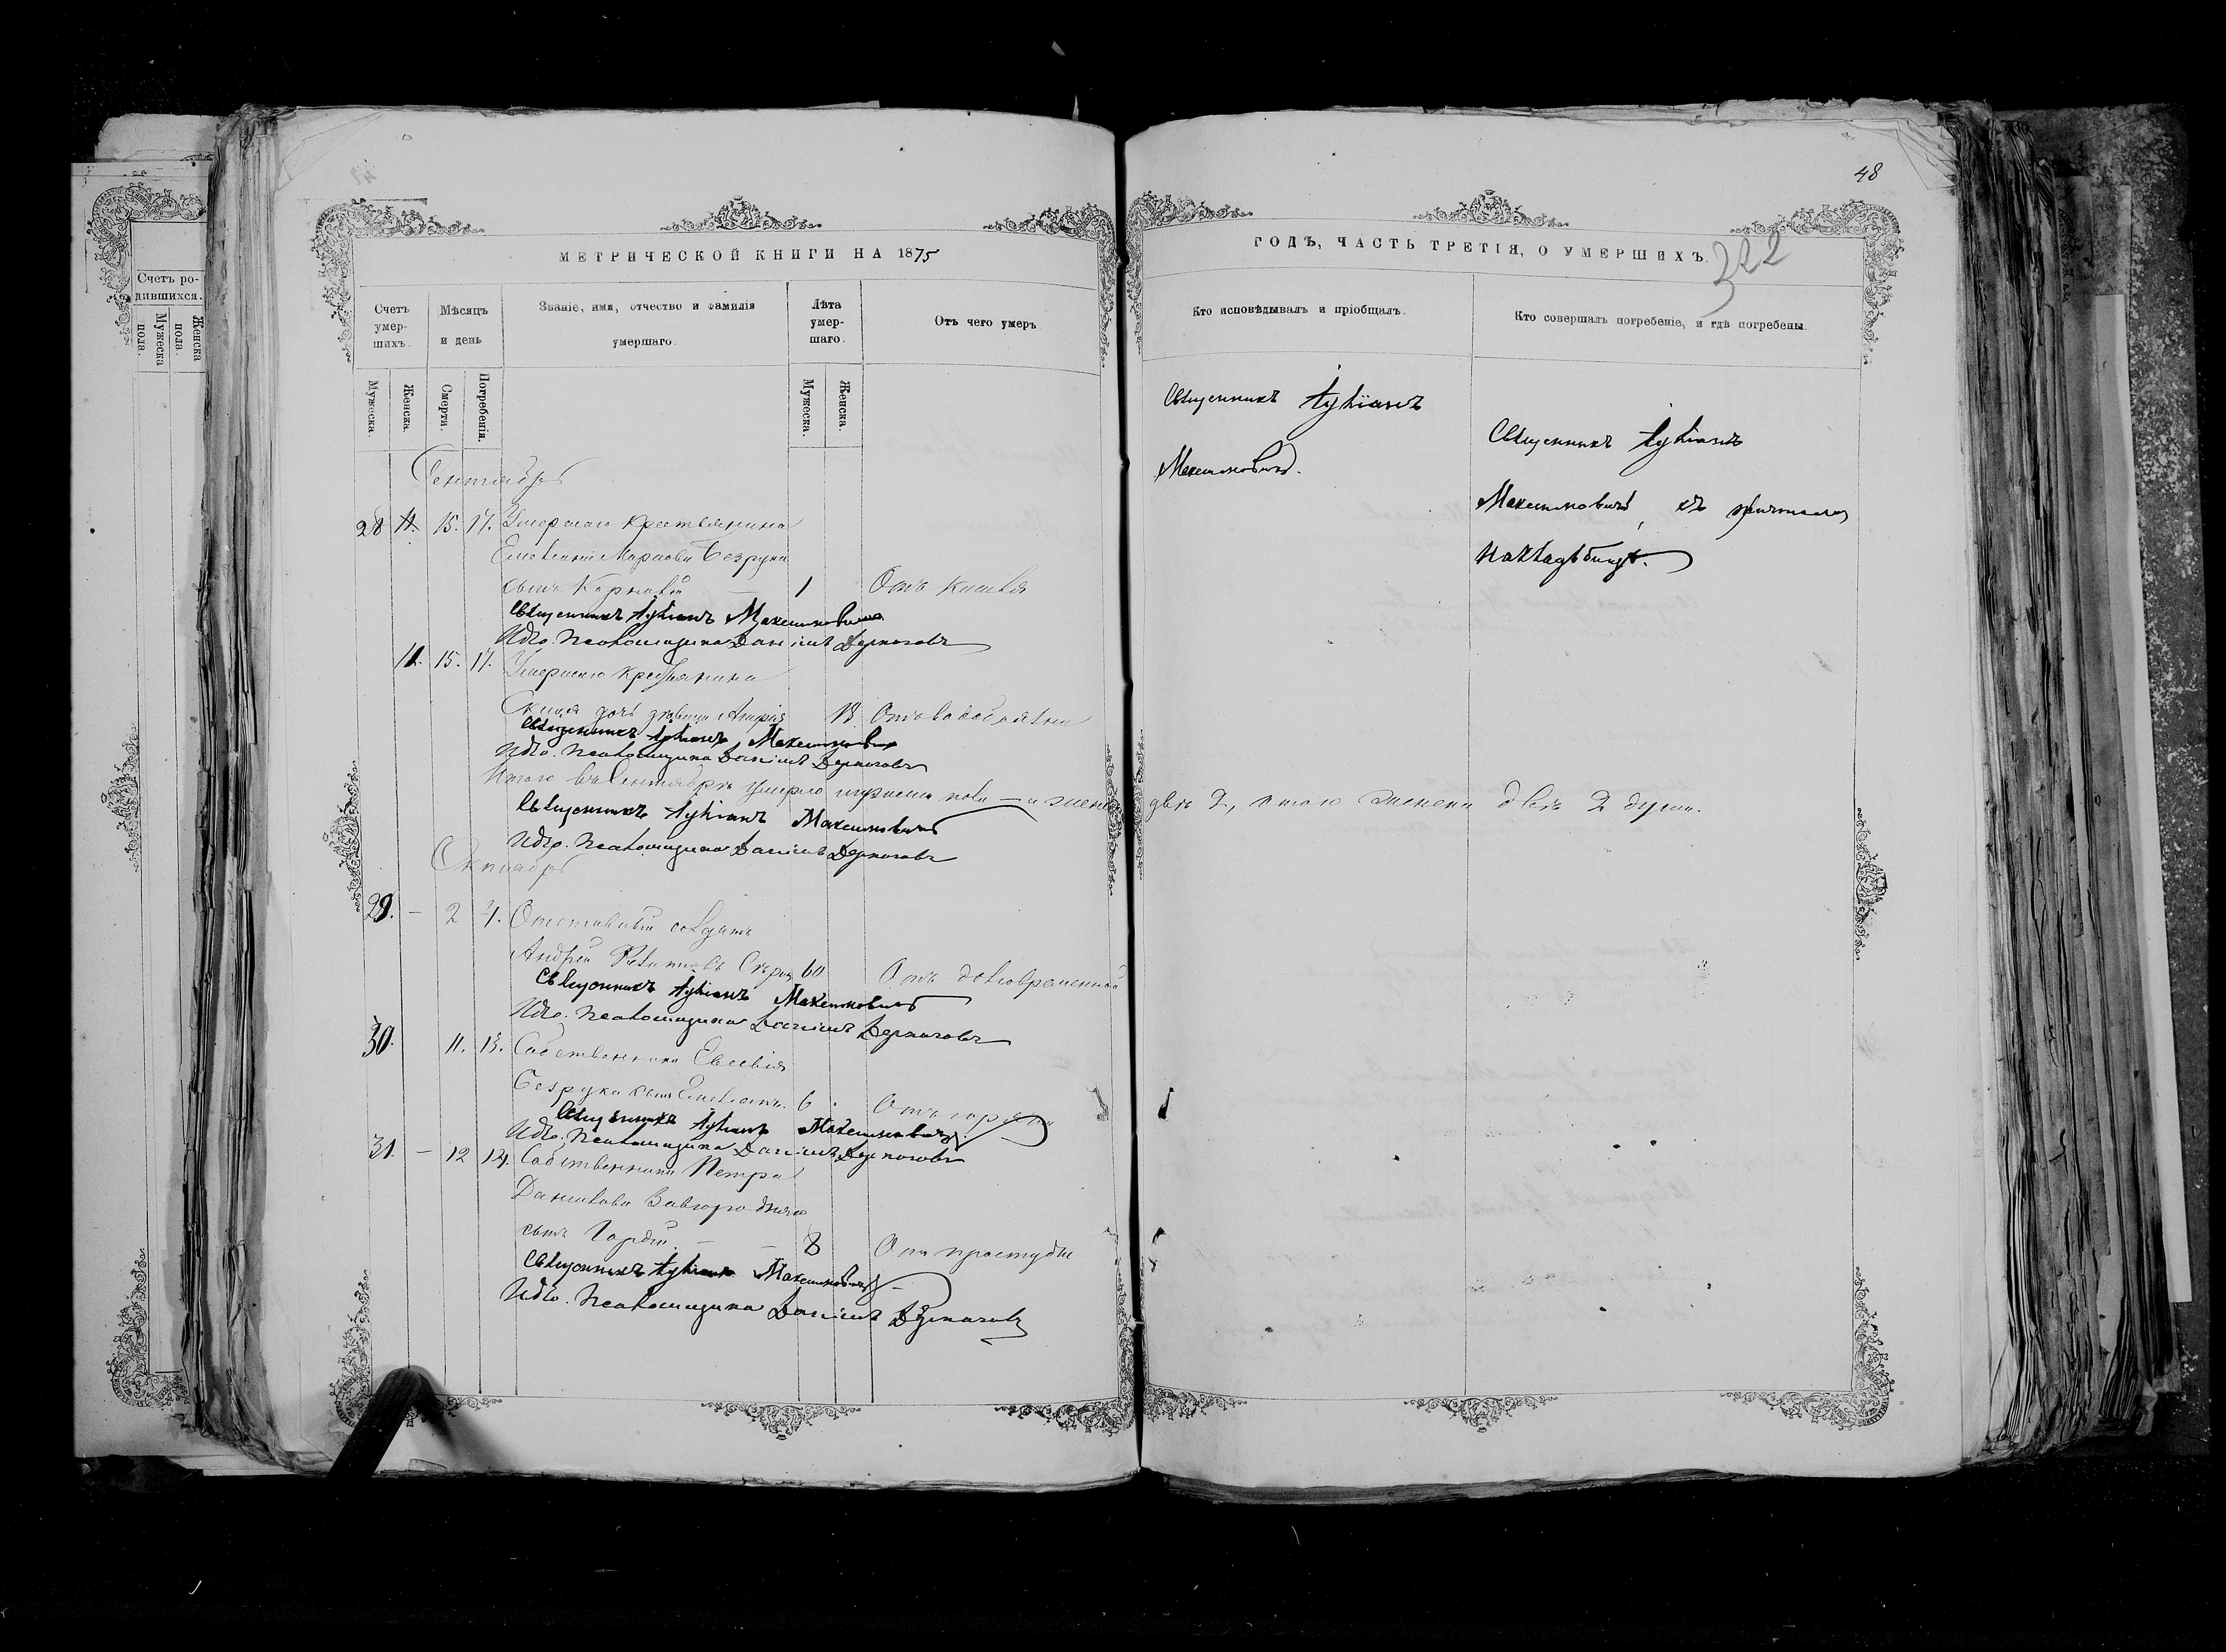 Счетъ ро-
дившихся.
Мужеска пола.
Женска пола.
МЕТРИЧЕСКОЙ КНИГИ НА 1875
Счетъ умер-шихъ.
Мѣсяцъ и день
Званіе, имя, отчество и фамилія умершаго.
Лѣта умер-шаго.
Отъ чего умеръ
Мужеска.
Женска.
Смерти.
Погребенія.
Мужеска.
Женска.
Сентябрь
28 11. 15. 17. Умершаго крестьянина
Безрука
сынъ 1 Отъ кашля
Священникъ Лукіанъ Максимовичъ
И. д. Псаломщика Даніилъ
11. 15. 17. Умершаго крестьянина
дочь девица 18 Отъ
Священникъ Лукіанъ Максимовичъ
И. д. Псаломщика Даніилъ
Итого въ Сентябрѣ умерло мужеска пола — и женска двѣ 2, итого женска двѣ 2 души.
Священникъ Лукіанъ Максимовичъ
И. д. Псаломщика Даніилъ
Октябрь
29. — 2 4. Отставной солдатъ
Андрей 60 Отъ долговременной
Священникъ Лукіанъ Максимовичъ
И. д. Псаломщика Даніилъ
30. 11. 13. Собственника Евсевія
Безрука сынъ Емеліанъ. 6 Отъ горячки
Священникъ Лукіанъ Максимовичъ
И. д. Псаломщика Даніилъ
31. — 12 14. Собственника Петра
Данилова
сынъ Гордій — — 8 Отъ простуды
Священникъ Лукіанъ Максимовичъ
И. д. Псаломщика Даніилъ
48
ГОДЪ, ЧАСТЬ ТРЕТІЯ, О УМЕРШИХЪ.
322
Кто исповѣдывалъ и пріобщалъ.
Кто совершалъ погребеніе, и гдѣ погребены.
Священникъ Лукіанъ
Максимовичъ.
Священникъ Лукіанъ
Максимовичъ, съ причтомъ
на кладбищѣ.